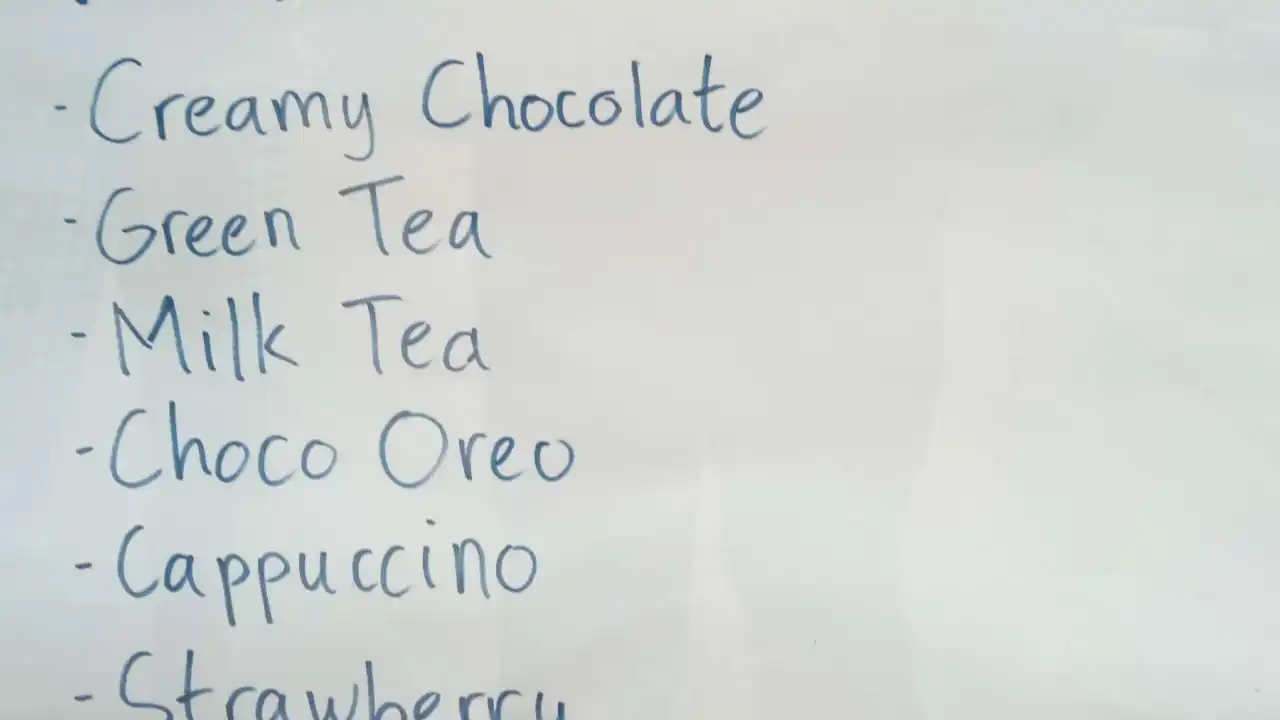 - Creamy Chocolate
- Green Tea
- Milk Tea
- Choco Oreo
- Cappuccino
- Strawberry